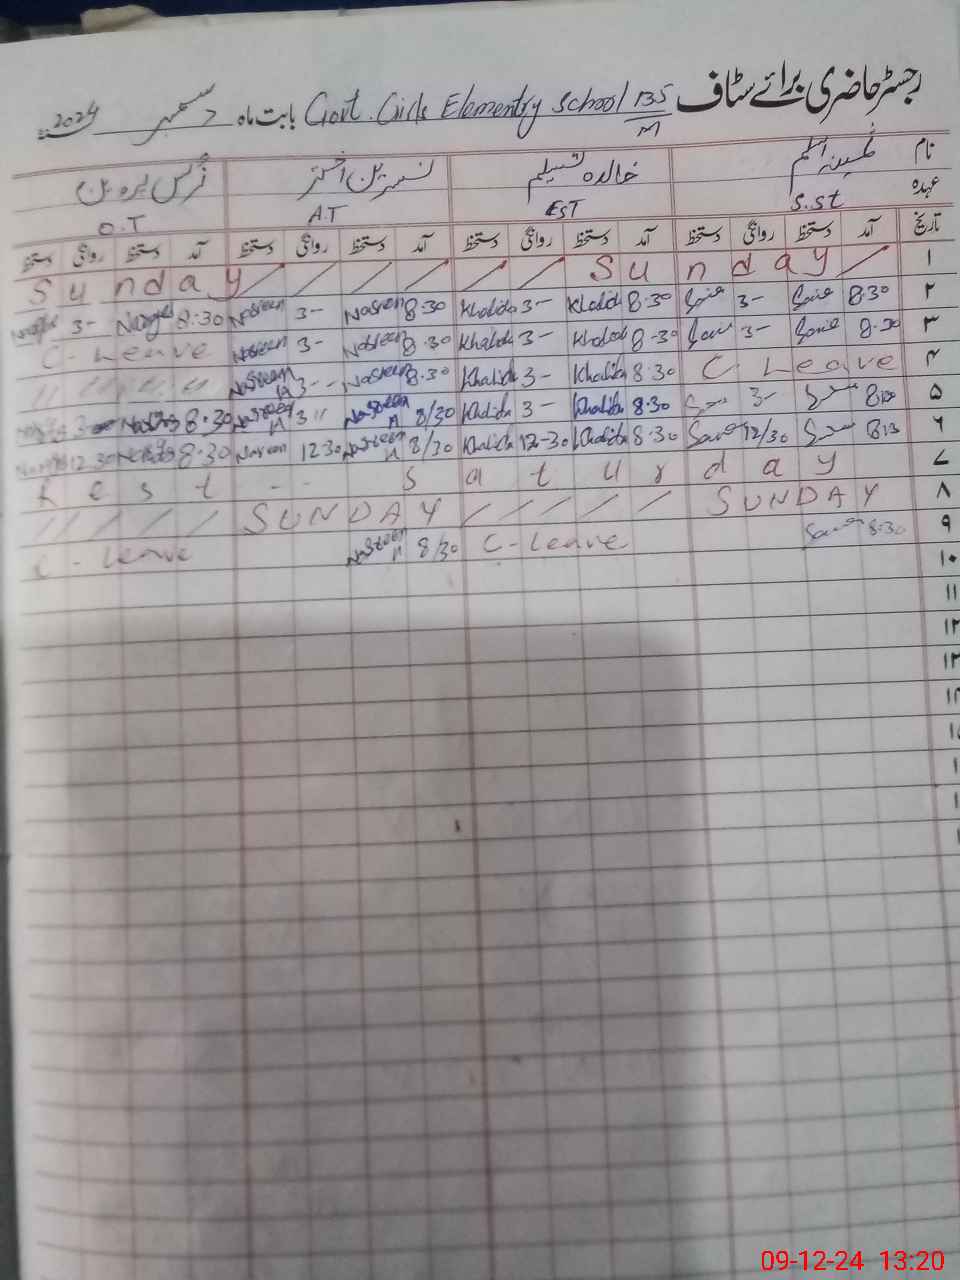 رجسٹر حاضری برائے سٹاف Govt. Girls Elementry School 135/M بابت ماہ دسمبر 2024
نام ثمینہ اسلم خالدہ تسلیم نسرین اختر نرگس پروین
عہدہ S.st EST A.T O.T
تاریخ آمد دستخط روانگی دستخط آمد دستخط روانگی دستخط آمد دستخط روانگی دستخط آمد دستخط روانگی دستخط
Sunday Sunday ۱
3- 8.30 Nasreen 3- Nasreen 8.30 Khalida 3- Khalida 8.30 3- 8.30 ۲
C- Leave Nasreen 3- Nasreen 8.30 Khalida 3- Khalida 8.30 3- 8.30 ۳
" " " " " Nasreen A 3-- Nasreen 8.30 Khalida 3- Khalida 8.30 C Leave ۴
8.30 Nasreen A 3" Nasreen A 8/30 Khalida 3- Khalida 8.30 3- ۵
12.30 8.30 Nasreen 12.30 Nasreen A 8/30 Khalida 12-30 Khalida 8.30 12/30 ۶
Rest -- Saturday ۷
/ / / / / SUNDAY / / / / SUNDAY ۸
C- Leave Nasreen A 8/30 C- Leave 8.30 ۹
۱۰
۱۱
۱۲
۱۳
09-12-24 13:20